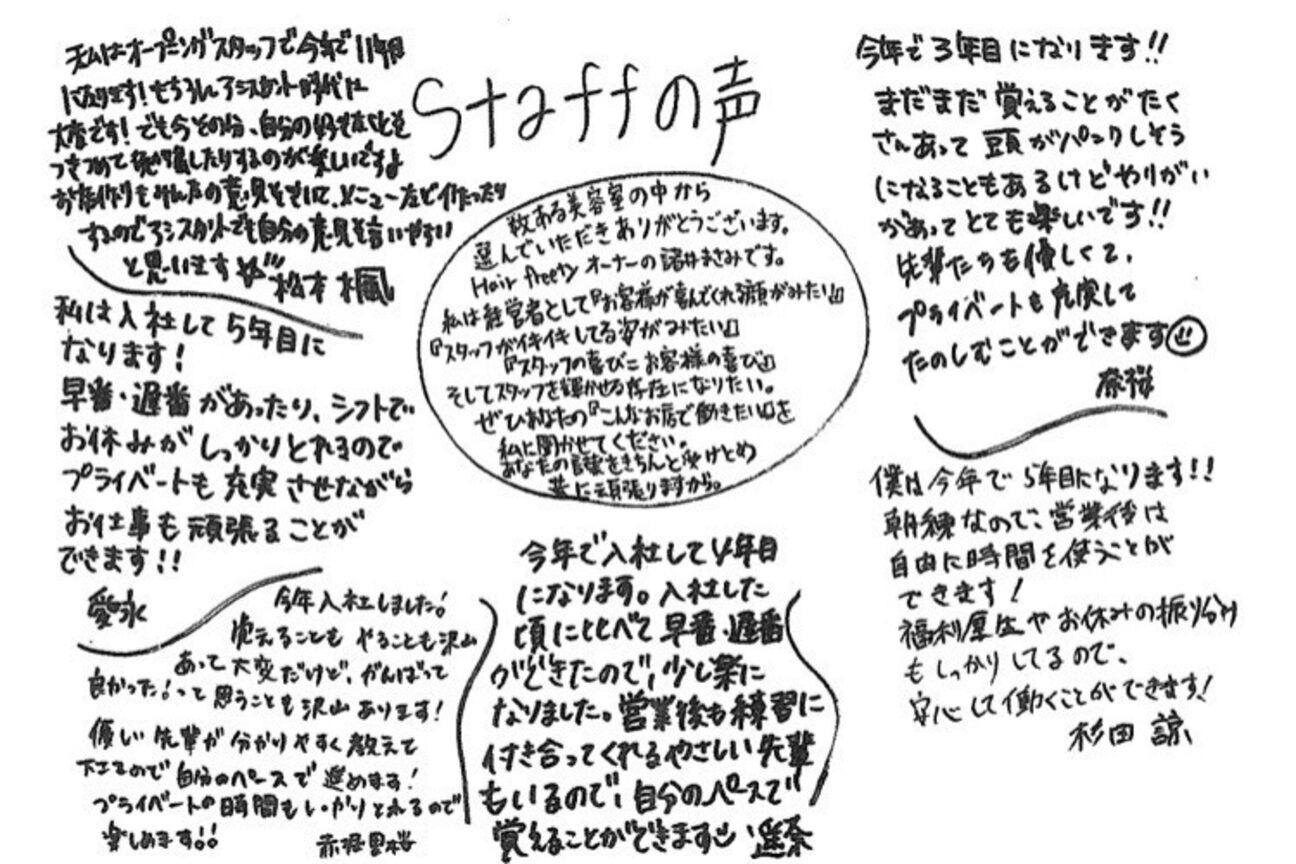 Staffの声
私はオープニングスタッフで今年で11年目
になります!もちろんアシスタント時代は
大変です!でも今その分、自分の好きなことを
つきつめて発信したりするのが楽しいですよ
お店作りもみんなの意見をきいて、メニューなど作ったり
するのでアシスタントでも自分の意見を言いやすい
と思います
松本 楓
私は入社して5年目に
なります!
早番・遅番があったり、シフトで
お休みがしっかりとれるので
プライベートも充実させながら
お仕事も頑張ることが
できます!!
愛永
今年入社しました!
覚えることも やることも沢山
あって大変だけど、がんばって
良かった!って思うことも沢山あります!
優しい先輩が分かりやすく教えて
下さるので自分のペースで進めます!
プライベートの時間もしっかりとれるので
楽しめます!!
赤堀里桜
数ある美容室の中から
選んでいただきありがとうございます。
Hair freety オーナーの諸井まさみです。
私は経営者として『お客様が喜んでくれる顔がみたい』
『スタッフがイキイキしてる姿がみたい』
『スタッフの喜び=お客様の喜び』
そしてスタッフを輝かせる存在になりたい。
ぜひあなたの『こんなお店で働きたい』を
私に聞かせてください。
あなたの言葉をきちんと受けとめ
共に頑張りますから。
今年で入社して4年目
になります。入社した
頃に比べて早番・遅番
ができたので、少し楽に
なりました。営業後も練習に
付き合ってくれるやさしい先輩
もいるので、自分のペースで
覚えることができます 遥奈
今年で3年目になります!!
まだまだ覚えることがたく
さんあって頭がパンクしそう
になることもあるけどやりがい
があってとても楽しいです!!
先輩たちも優しくて、
プライベートも充実して
たのしむことができます
奈桜
僕は今年で5年目になります!!
朝練なので、営業後は
自由に時間を使うことが
できます!
福利厚生やお休みの振り分け
もしっかりしてるので、
安心して働くことができます!
杉田 諒